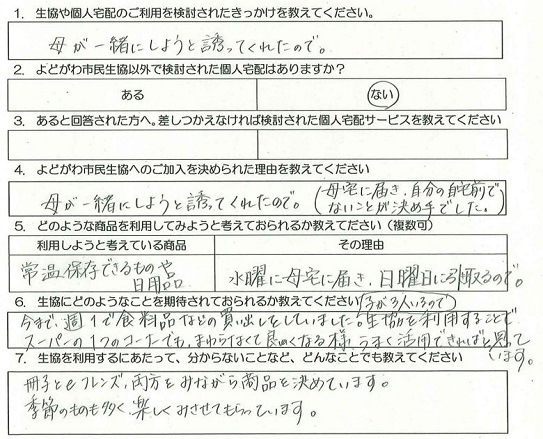 1. 生協や個人宅配のご利用を検討されたきっかけを教えてください。
母が一緒にしようと誘ってくれたので。
2. よどがわ市民生協以外で検討された個人宅配はありますか?
ある ない
3. あると回答された方へ。差しつかえなければ検討された個人宅配サービスを教えてください
4. よどがわ市民生協へのご加入を決められた理由を教えてください
母が一緒にしようと誘ってくれたので。(母宅に届き、自分の自宅前で
ないことが決め手でした。)
5. どのような商品を利用してみようと考えておられるか教えてください(複数可)
利用しようと考えている商品 その理由
常温保存できるものや
日用品
水曜に母宅に届き、日曜日に引取るので。
6. 生協にどのようなことを期待されておられるか教えてください(子が3人いるので)
今まで、週1で食料品などの買い出しをしていました。生協を利用することで
スーパーの1つのコーナーでも、まわらなくて良くなる様、うまく活用できればと思って
います。
7. 生協を利用するにあたって、分からないことなど、どんなことでも教えてください
冊子とeフレンズ、両方をみながら商品を決めています。
季節のものも多く、楽しくみさせてもらっています。